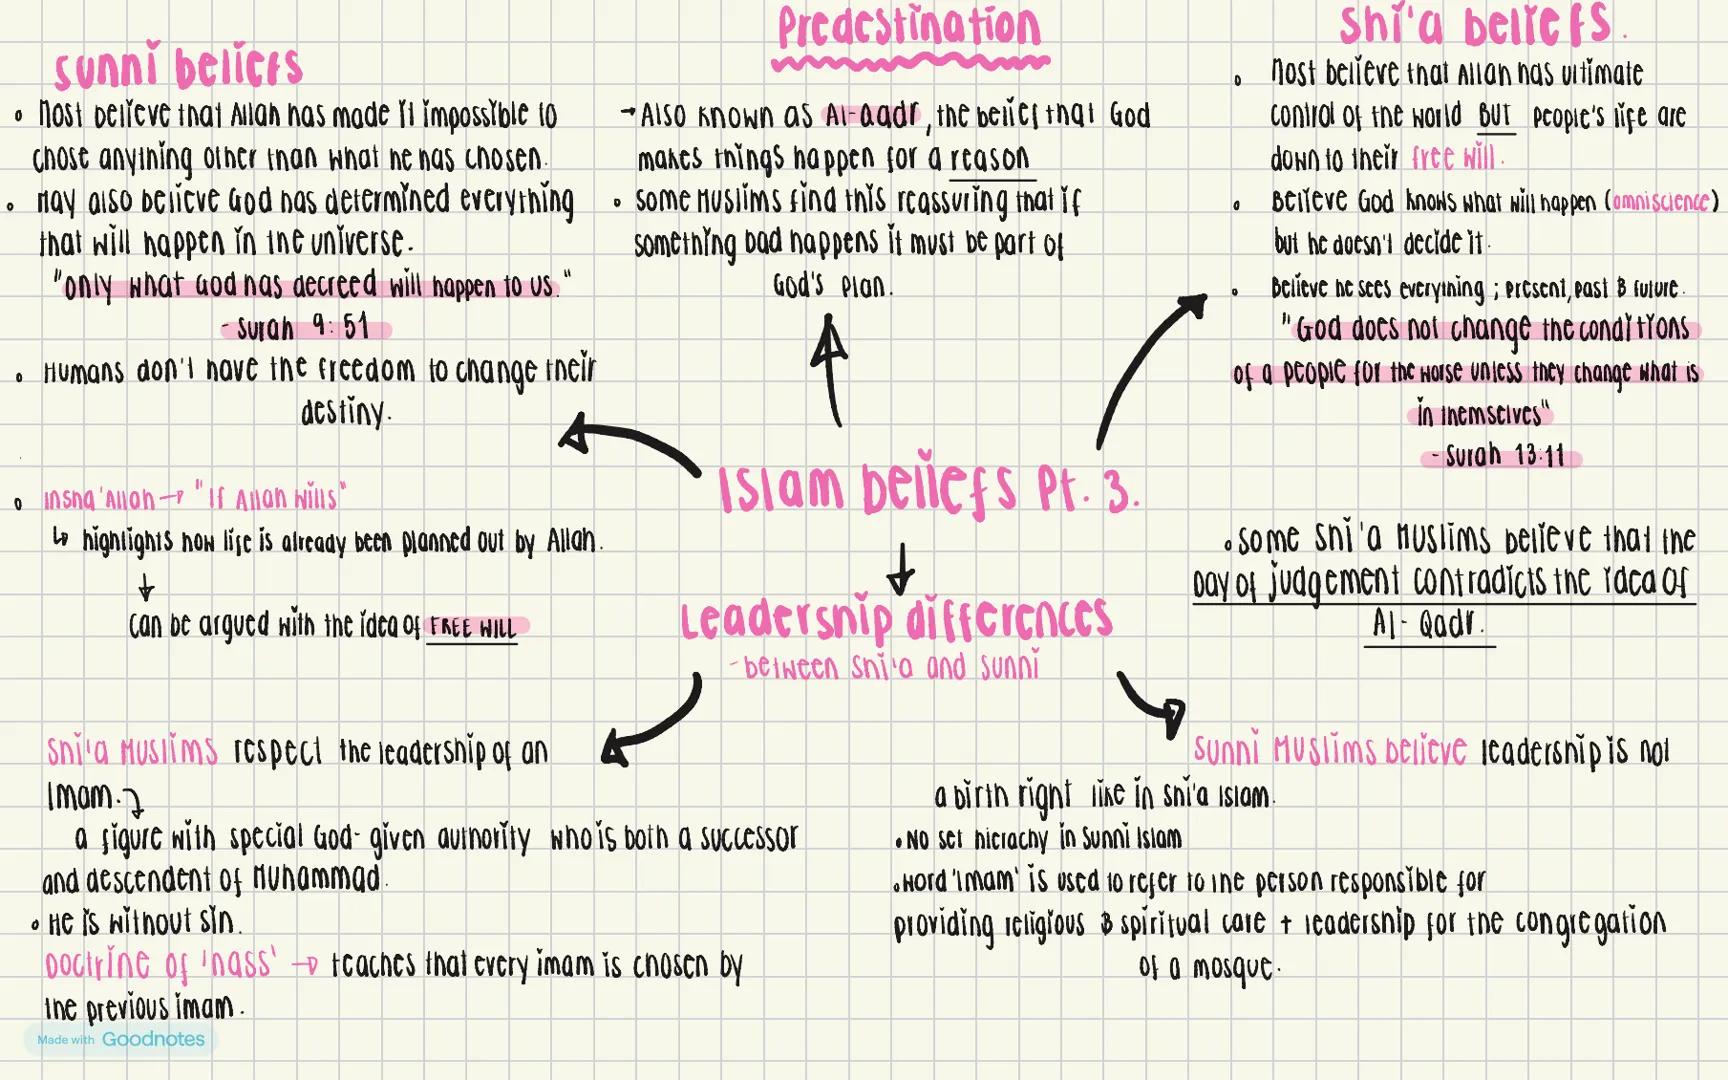 Sunni beliefs
• Most believe that Allah has made it impossible to
chose anything other than what he has chosen.
• May also believe God has determined everything
that will happen in the universe.
"only what God has decreed will happen to us."
- Surah 9:51
• Humans don't have the freedom to change their
destiny.
• Insha'Allah → "If Allah Wills"
↳ highlights how life is already been planned out by Allah.
↓
Can be argued with the idea of FREE WILL
Predestination
→ Also known as Al-Qadr, the belief that God
makes things happen for a reason
• Some Muslims find this reassuring that if
something bad happens it must be part of
God's plan.
Shi'a beliefs.
• Most believe that Allah has ultimate
control of the world BUT people's life are
down to their free will.
• Believe God knows what will happen (omniscience)
but he doesn't decide it.
• Believe he sees everything; present, past & future.
"God does not change the conditions
of a people for the worse unless they change what is
in themselves"
- Surah 13:11
• Some Shi'a Muslims believe that the
Day of judgement contradicts the idea of
Al-Qadr.
Islam beliefs Pt. 3.
Leadership differences
- between Shi'a and Sunni
Shi'a Muslims respect the leadership of an
Imam.
a figure with special God-given authority who is both a successor
and descendent of Muhammad.
• He is without sin.
Doctrine of 'nass' → teaches that every imam is chosen by
the previous imam.
Sunni Muslims believe leadership is not
a birth right like in Shi'a Islam.
• No set hierachy in Sunni Islam
• Word 'Imam' is used to refer to the person responsible for
providing religious & spiritual care + leadership for the congregation
of a mosque.
Made with Goodnotes